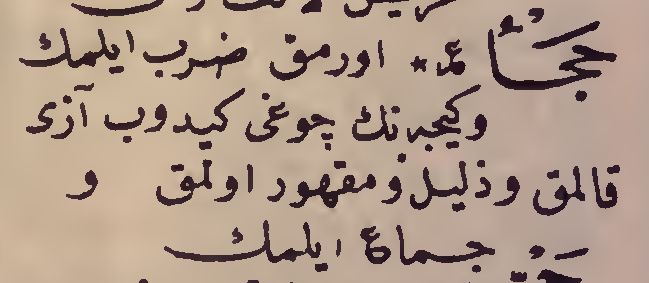 حَجَأَ ع * اورمق ضرب ايلمك
وكيجه نك چوغى كيدوب آزى
قالمق و ذليل و مقهور اولمق و
جماع ايلمك